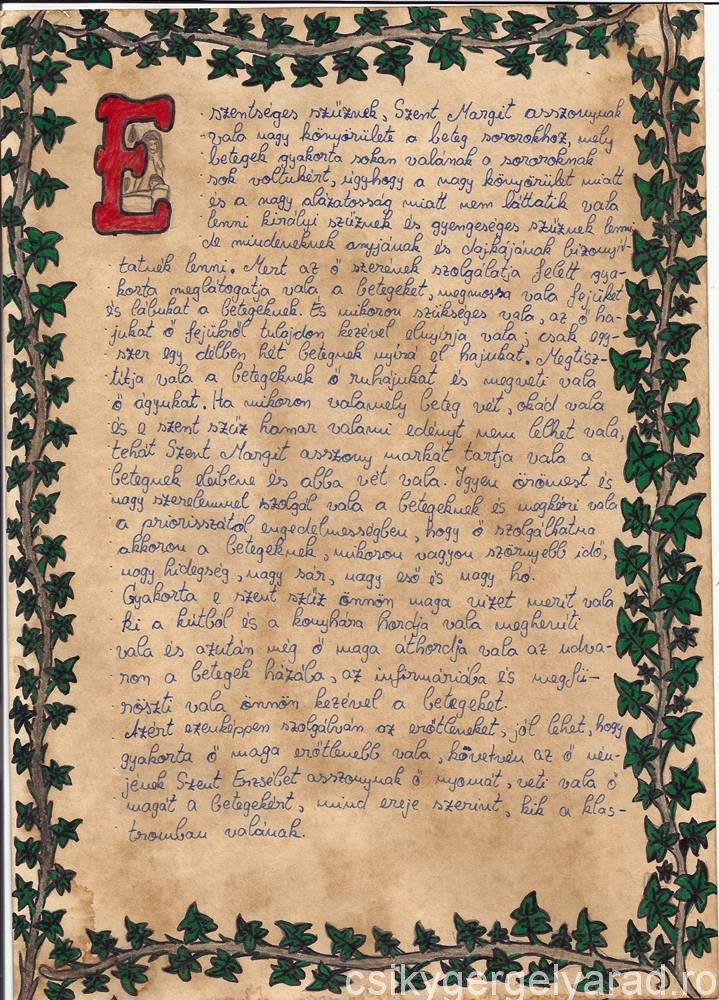 E szentséges szűznek, Szent Margit asszonynak
vala nagy könyörülete a beteg sororokhoz, mely
betegek gyakorta sokan valának a sororoknak
sok voltukért, úgyhogy a nagy könyörület miatt
és a nagy alázatosság miatt nem láttatik vala
lenni királyi szűznek és gyengeséges szűznek lenni,
de mindeneknek anyjának és dajkájának bizonyít-
tatnék lenni. Mert az ő szerenek szolgálatja felett gya-
korta meglátogatja vala a betegeket, megmossa vala fejüket
és lábukat a betegeknek. És mikoron szükséges vala, az ő ha-
jukat ő fejükről tulajdon kezével elnyírja vala, csak egy-
szer egy délben hét betegnek nyíra el hajukat. Megtisz-
títja vala a betegeknek ő ruhájukat és megveti vala
ő ágyukat. Ha mikoron valamely beteg vét, okád vala
és e szent szűz hamar valami edényt nem lelhet vala,
tehát Szent Margit asszony markát tartja vala a
betegnek eleibene és abba vét vala. Igyen örömest és
nagy szerelemmel szolgál vala a betegeknek és megkéri vala
a priorisszától engedelmességben, hogy ő szolgálhatna
akkoron a betegeknek, mikoron vagyon szörnyebb idő,
nagy hidegség, nagy sár, nagy eső és nagy hó.
Gyakorta e szent szűz önnön maga vizet merít vala
ki a kútból és a konyhára hordja vala megheviti
vala és azután még ő maga áthordja vala az udva-
ron a betegek házába, az infirmáriába és megfü-
röszti vala önnön kezével a betegeket.
Azért ezenképpen szolgálván az erőtleneket, jól lehet, hogy
gyakorta ő maga erőtlenebb vala, követvén az ő nén-
jének Szent Erzsébet asszonynak ő nyomát, veti vala ő
magát a betegekért, mind ereje szerint, kik a klas-
tromban valának.
csikygergelyarad.ro